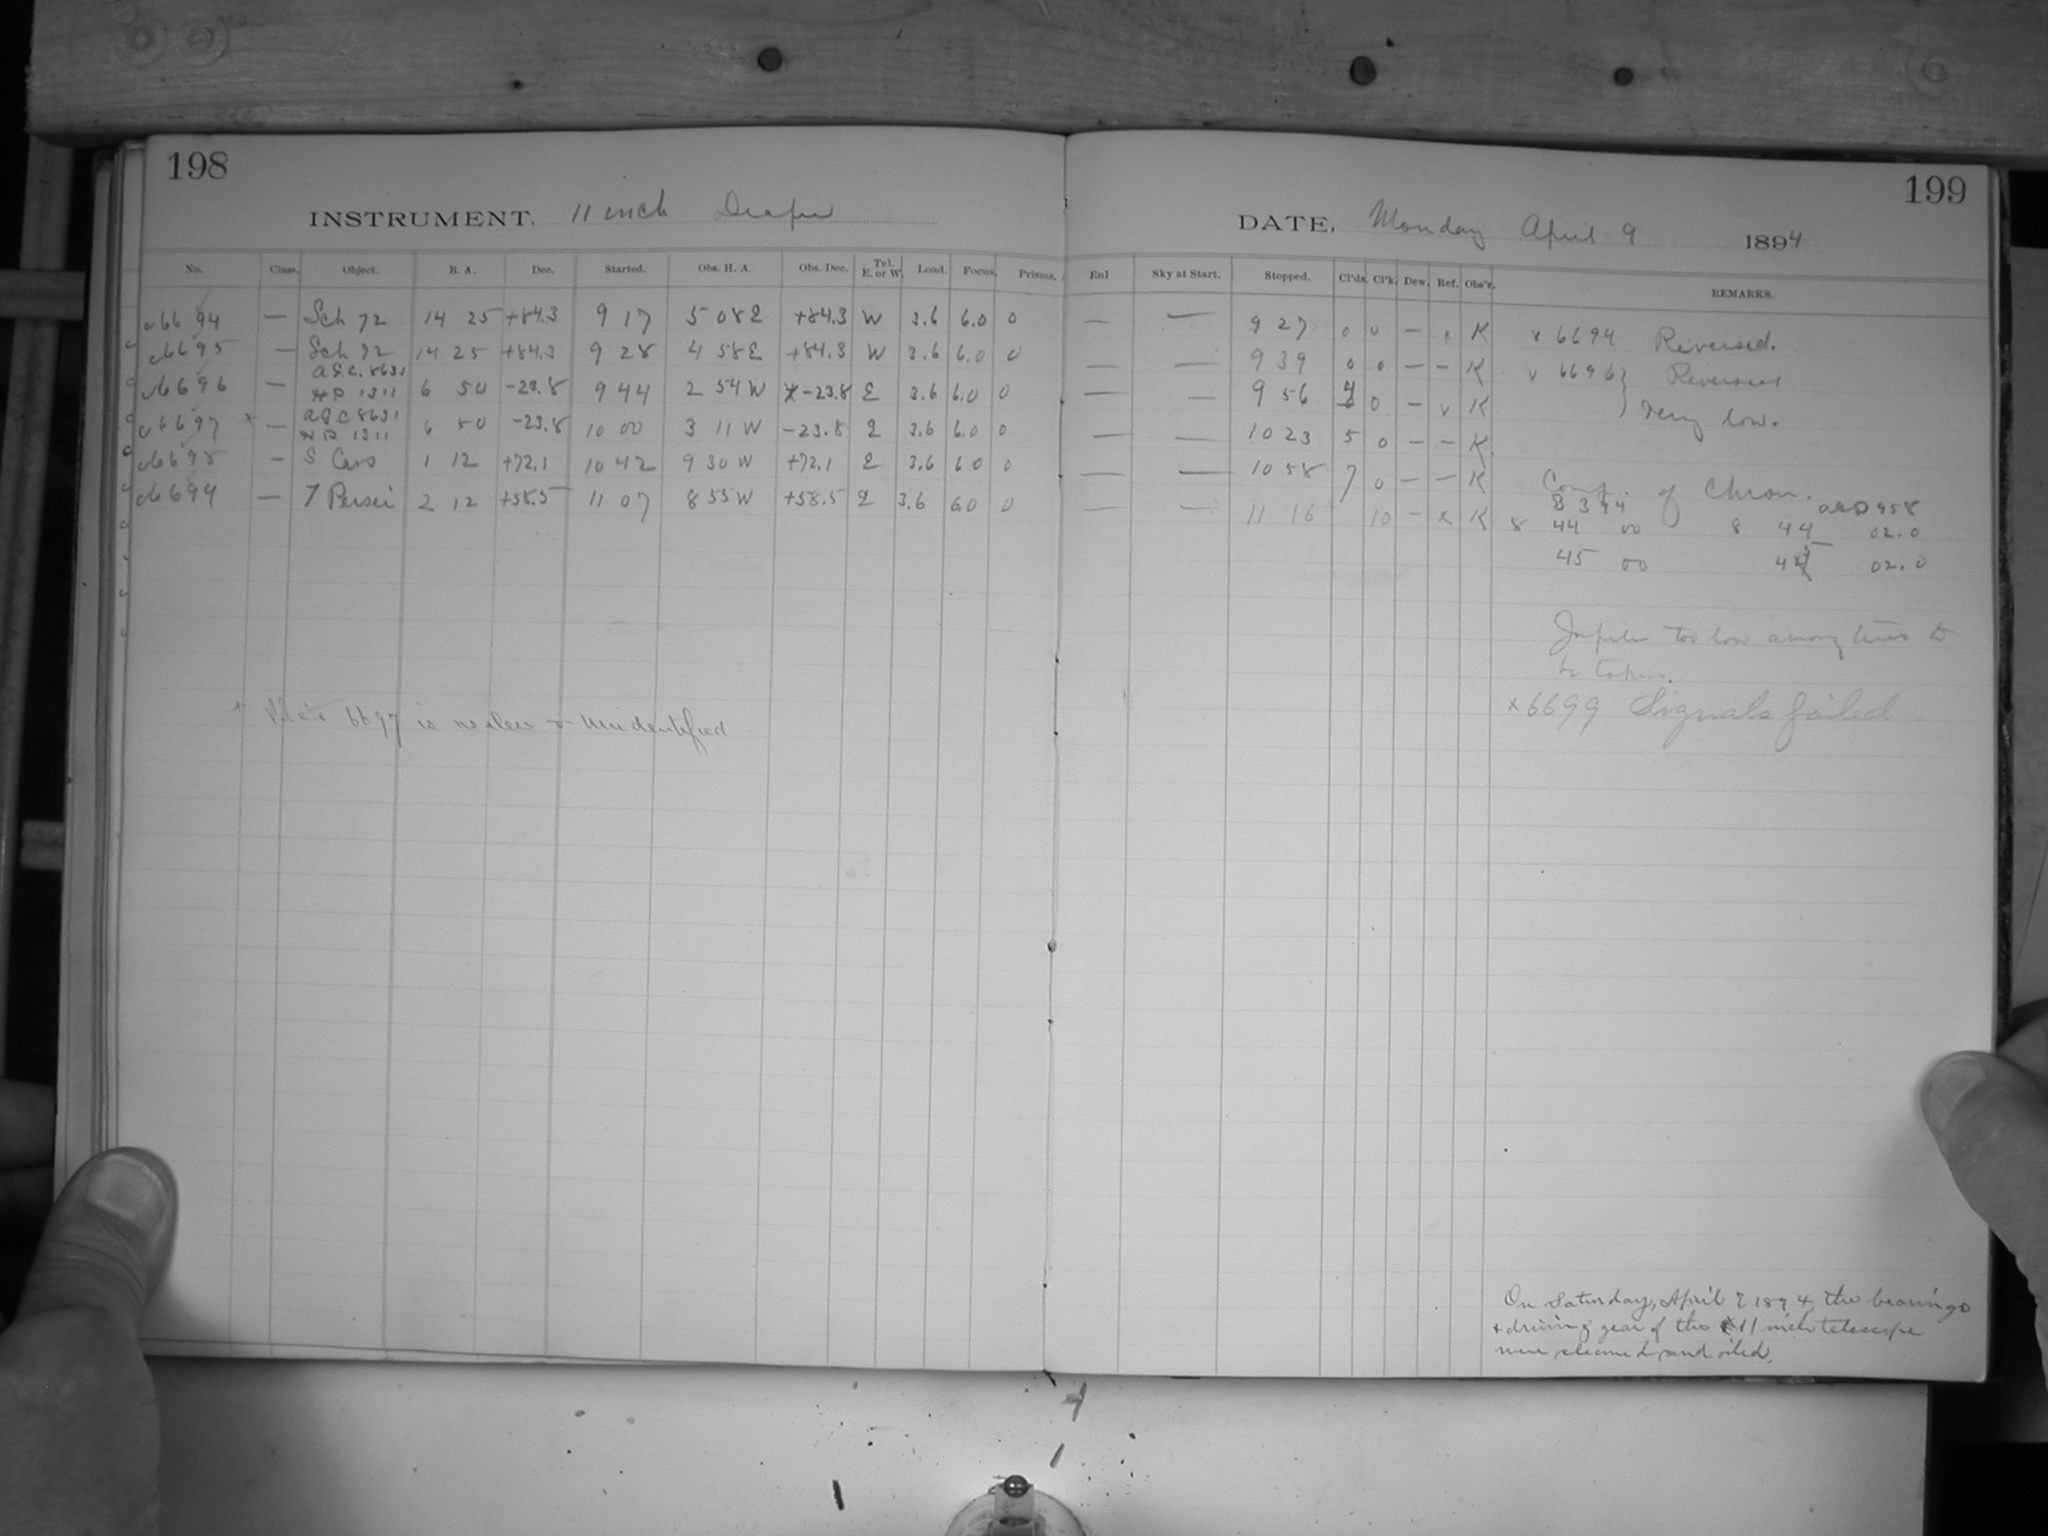 198
INSTRUMENT. 11 inch Draper
No. Class. Object. R. A. Dec. Started. Obs. H. A. Obs. Dec. Tel. E. or W. Load. Focus. Prisms.
c6694 — Sch 72 14 25 +84.3 9 17 5 08 E +84.3 W 3.6 6.0 0
c6695 — Sch 72 14 25 +84.3 9 28 4 58 E +84.3 W 3.6 6.0 0
A.G.C. 8631
c6696 — HP 1311 6 50 -23.8 9 44 2 54 W -23.8 E 3.6 6.0 0
A G C 8631
c6697 x — HP 1311 6 50 -23.8 10 00 3 11 W -23.8 E 3.6 6.0 0
c6698 — S Cass 1 12 +72.1 10 42 9 30 W +72.1 E 3.6 6.0 0
c6699 — T Persei 2 12 +58.5 11 07 8 55 W +58.5 E 3.6 6.0 0
x Plate 6697 is useless & unidentified
199
DATE, Monday April 9 1894
Enl Sky at Start. Stopped. Cl'ds. Cl'k. Dew. Ref. Obs'r. REMARKS.
— — 9 27 0 0 — x K x 6694 Reversed.
— — 9 39 0 0 — — K
— — 9 56 4 0 — v K v 6696 } Reversed
very low.
— — 10 23 5 0 — — K
— — 10 58 7 0 — — K Comp. of Chron.
B 394
— — 11 16 10 — x K 8 44 00 8 44 02.0
45 00 45 02.0
Jupiter too low among trees to
be taken.
x 6699 Signals failed
On Saturday, April 7 1894 the bearings
& driving gear of the 11 inch telescope
were cleaned and oiled.